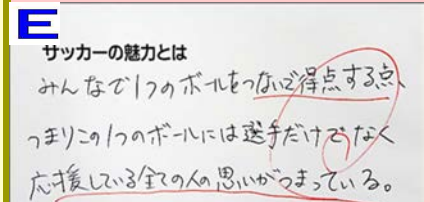 E
サッカーの魅力とは
みんなで1つのボールをつないで得点する点、
つまりこの1つのボールには選手だけでなく
応援している全ての人の思いがつまっている。